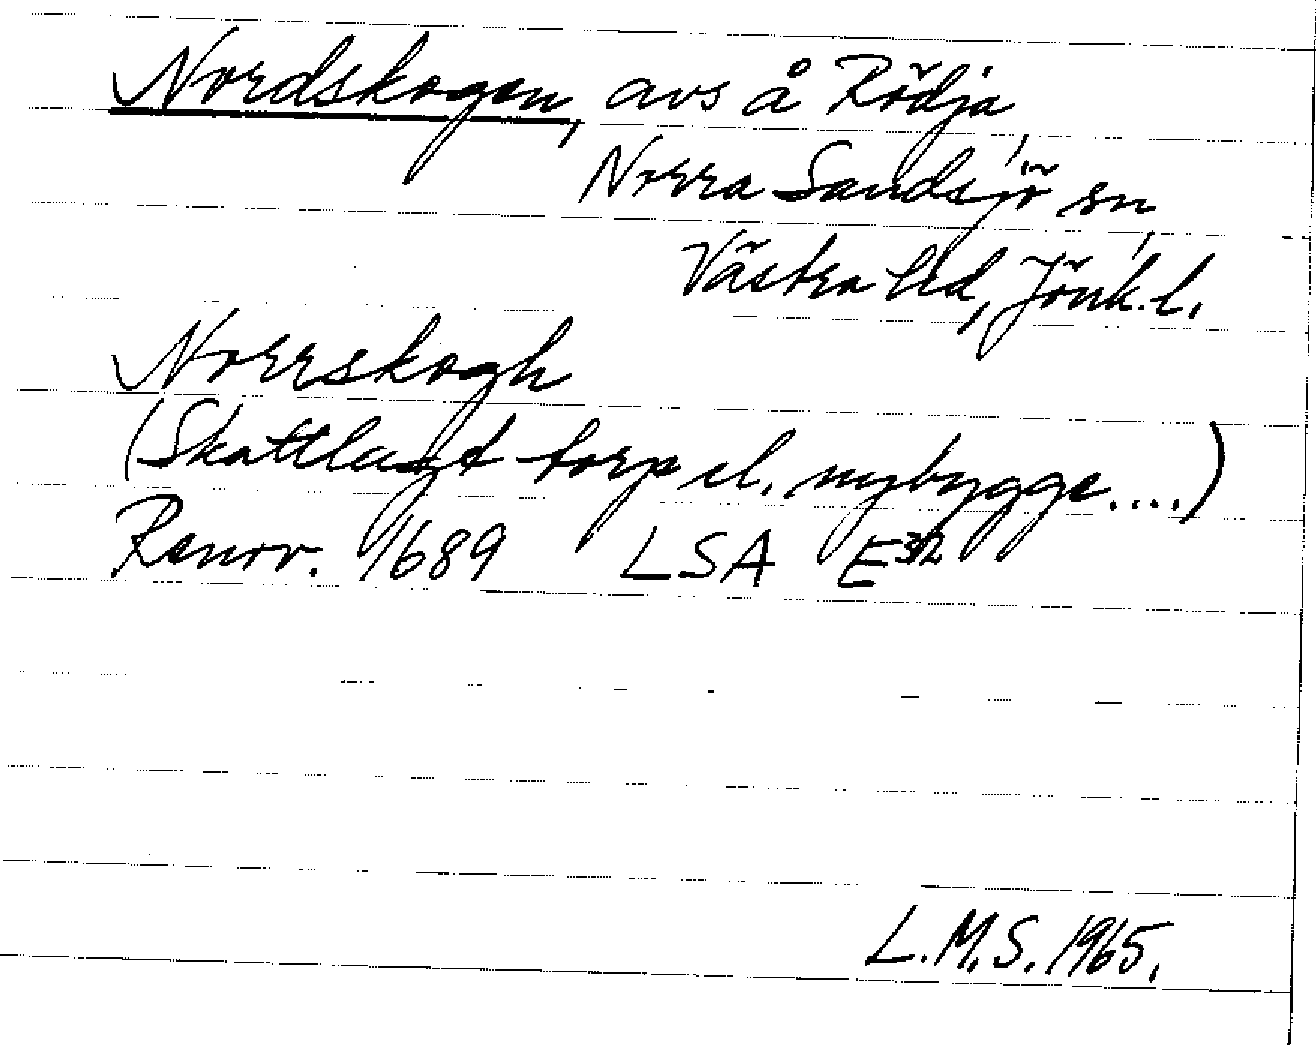 Nordskogen, avs å Rödja,
Norra Sandsjö sn,
Västra hd, Jönk.l.
Norrskogh
(Skattlagt torp el. nybygge....)
Renov. 1689 LSA E32
L.M.S. 1965.